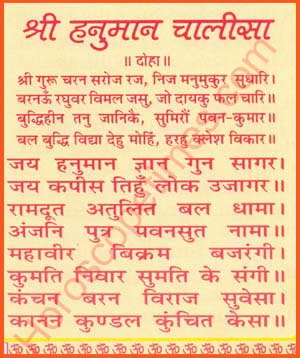 श्री हनुमान चालीसा
॥ दोहा ॥
श्री गुरू चरन सरोज रज, निज मनुमुकुर सुधारि।
बरनऊँ रघुवर विमल जसु, जो दायकु फल चारि॥
बुद्धिहीन तनु जानिकै, सुमिरौं पवन-कुमार॥
बल बुद्धि विद्या देहु मोहिं, हरहु क्लेश विकार॥
जय हनुमान ज्ञान गुन सागर।
जय कपीस तिहुँ लोक उजागर॥
रामदूत अतुलित बल धामा।
अंजनि पुत्र पवनसुत नामा॥
महावीर बिक्रम बजरंगी।
कुमति निवार सुमति के संगी॥
कंचन बरन विराज सुवेसा।
कानन कुण्डल कुंचित केसा॥
Horoscopetimes.com